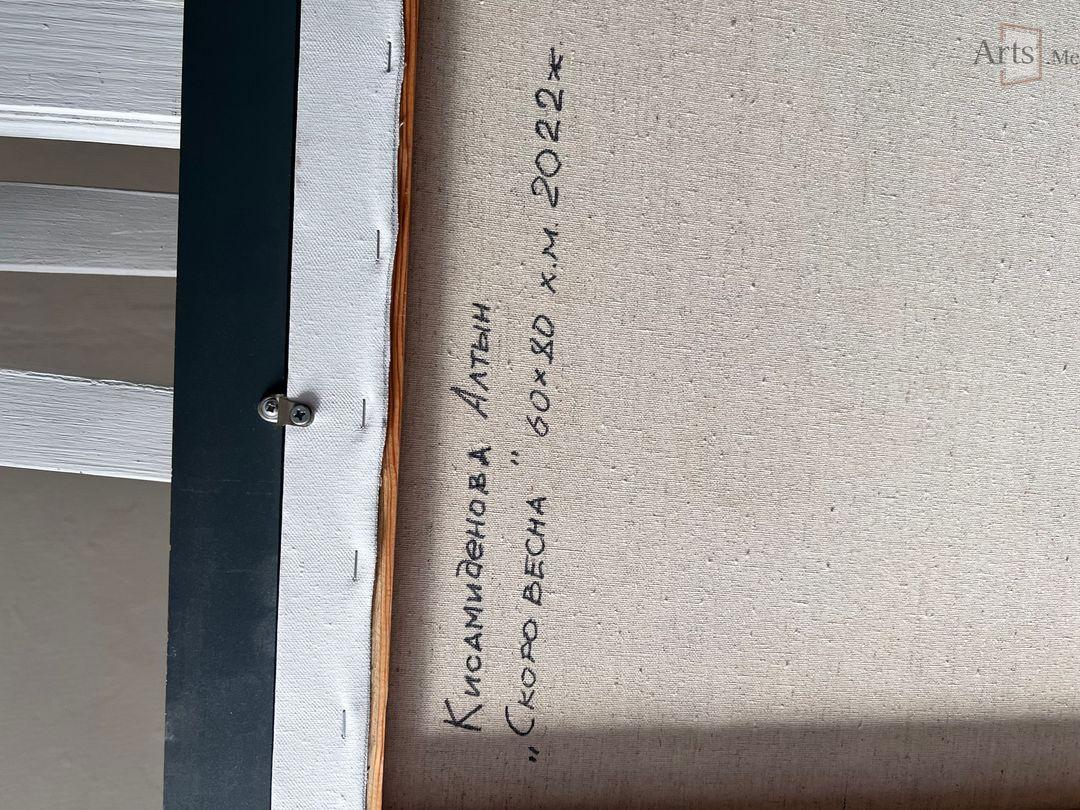 Кисамиденова Алтын
„Скоро весна" 60×80 х.м. 2022ж.
Arts.Me